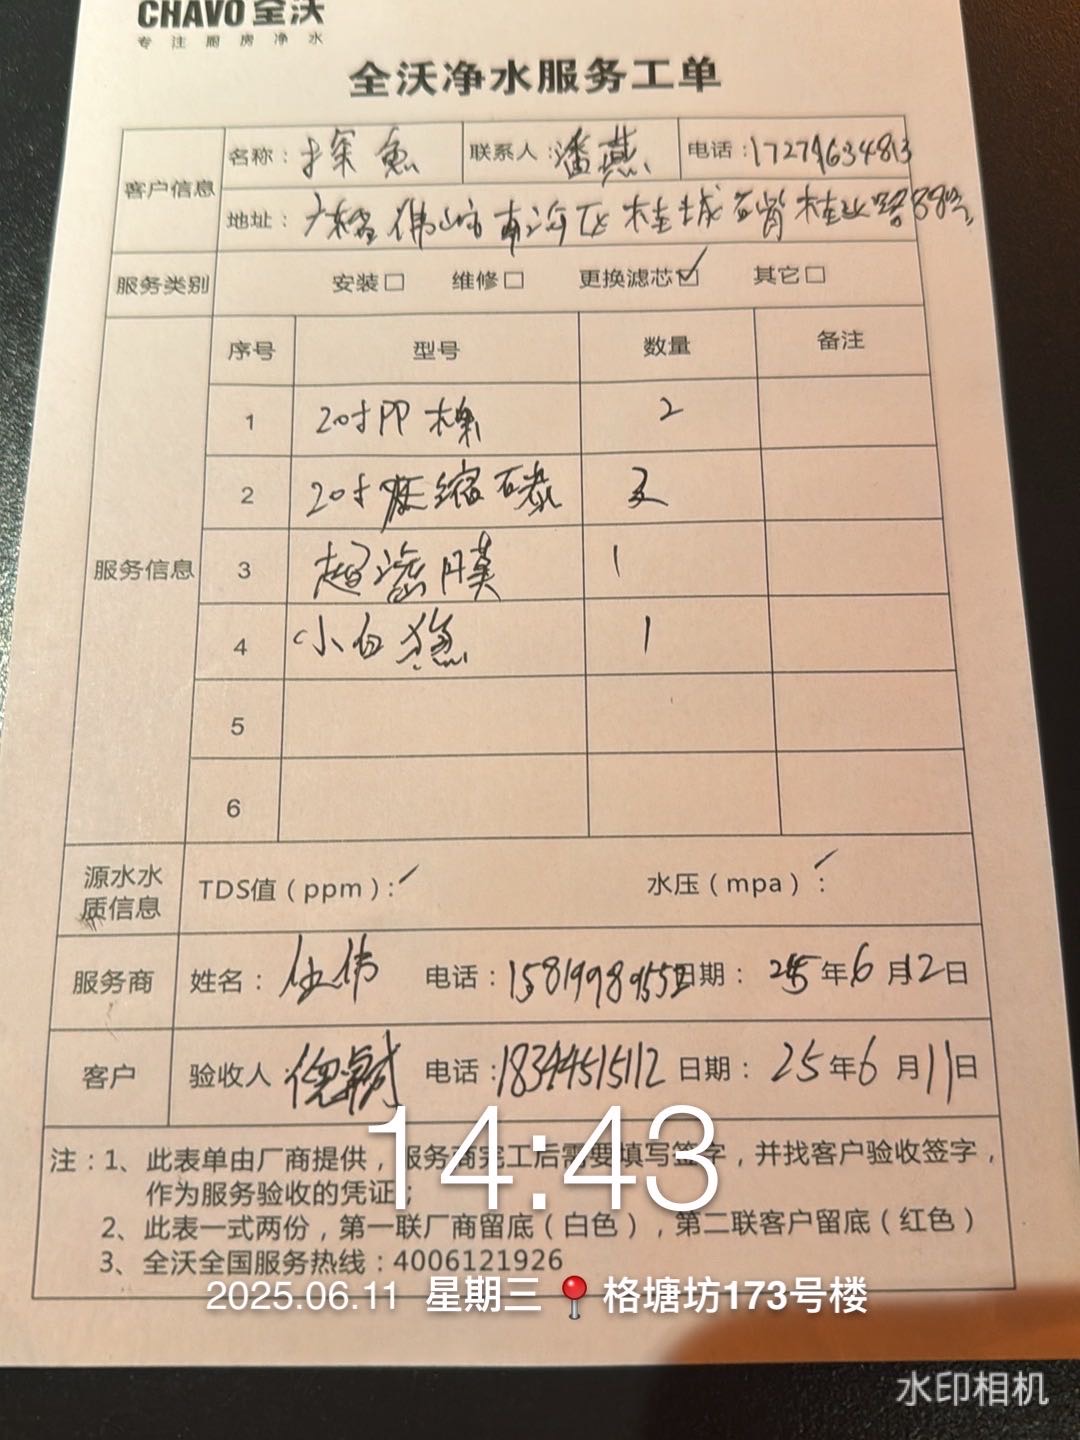 CHAVO 全沃
专注厨房净水
全沃净水服务工单
客户信息 名称：探鱼 联系人：潘燕 电话：17279634813
地址：广东省佛山市南海区桂城 桂 路 号
服务类别 安装□ 维修□ 更换滤芯☑ 其它□
序号 型号 数量 备注
1 20寸PP棉 2
2 20寸压缩碳 2
服务信息 3 超滤膜 1
4 小白 1
5
6
源水水质信息 TDS值（ppm）：✓ 水压（mpa）：✓
服务商 姓名：伟 电话： 日期：25年6月12日
客户 验收人： 电话：18344515112 日期：25年6月11日
14:43
注：1、此表单由厂商提供，服务商完工后需要填写签字，并找客户验收签字，
作为服务验收的凭证；
2、此表一式两份，第一联厂商留底（白色），第二联客户留底（红色）
3、全沃全国服务热线：4006121926
2025.06.11 星期三 格塘坊173号楼
水印相机